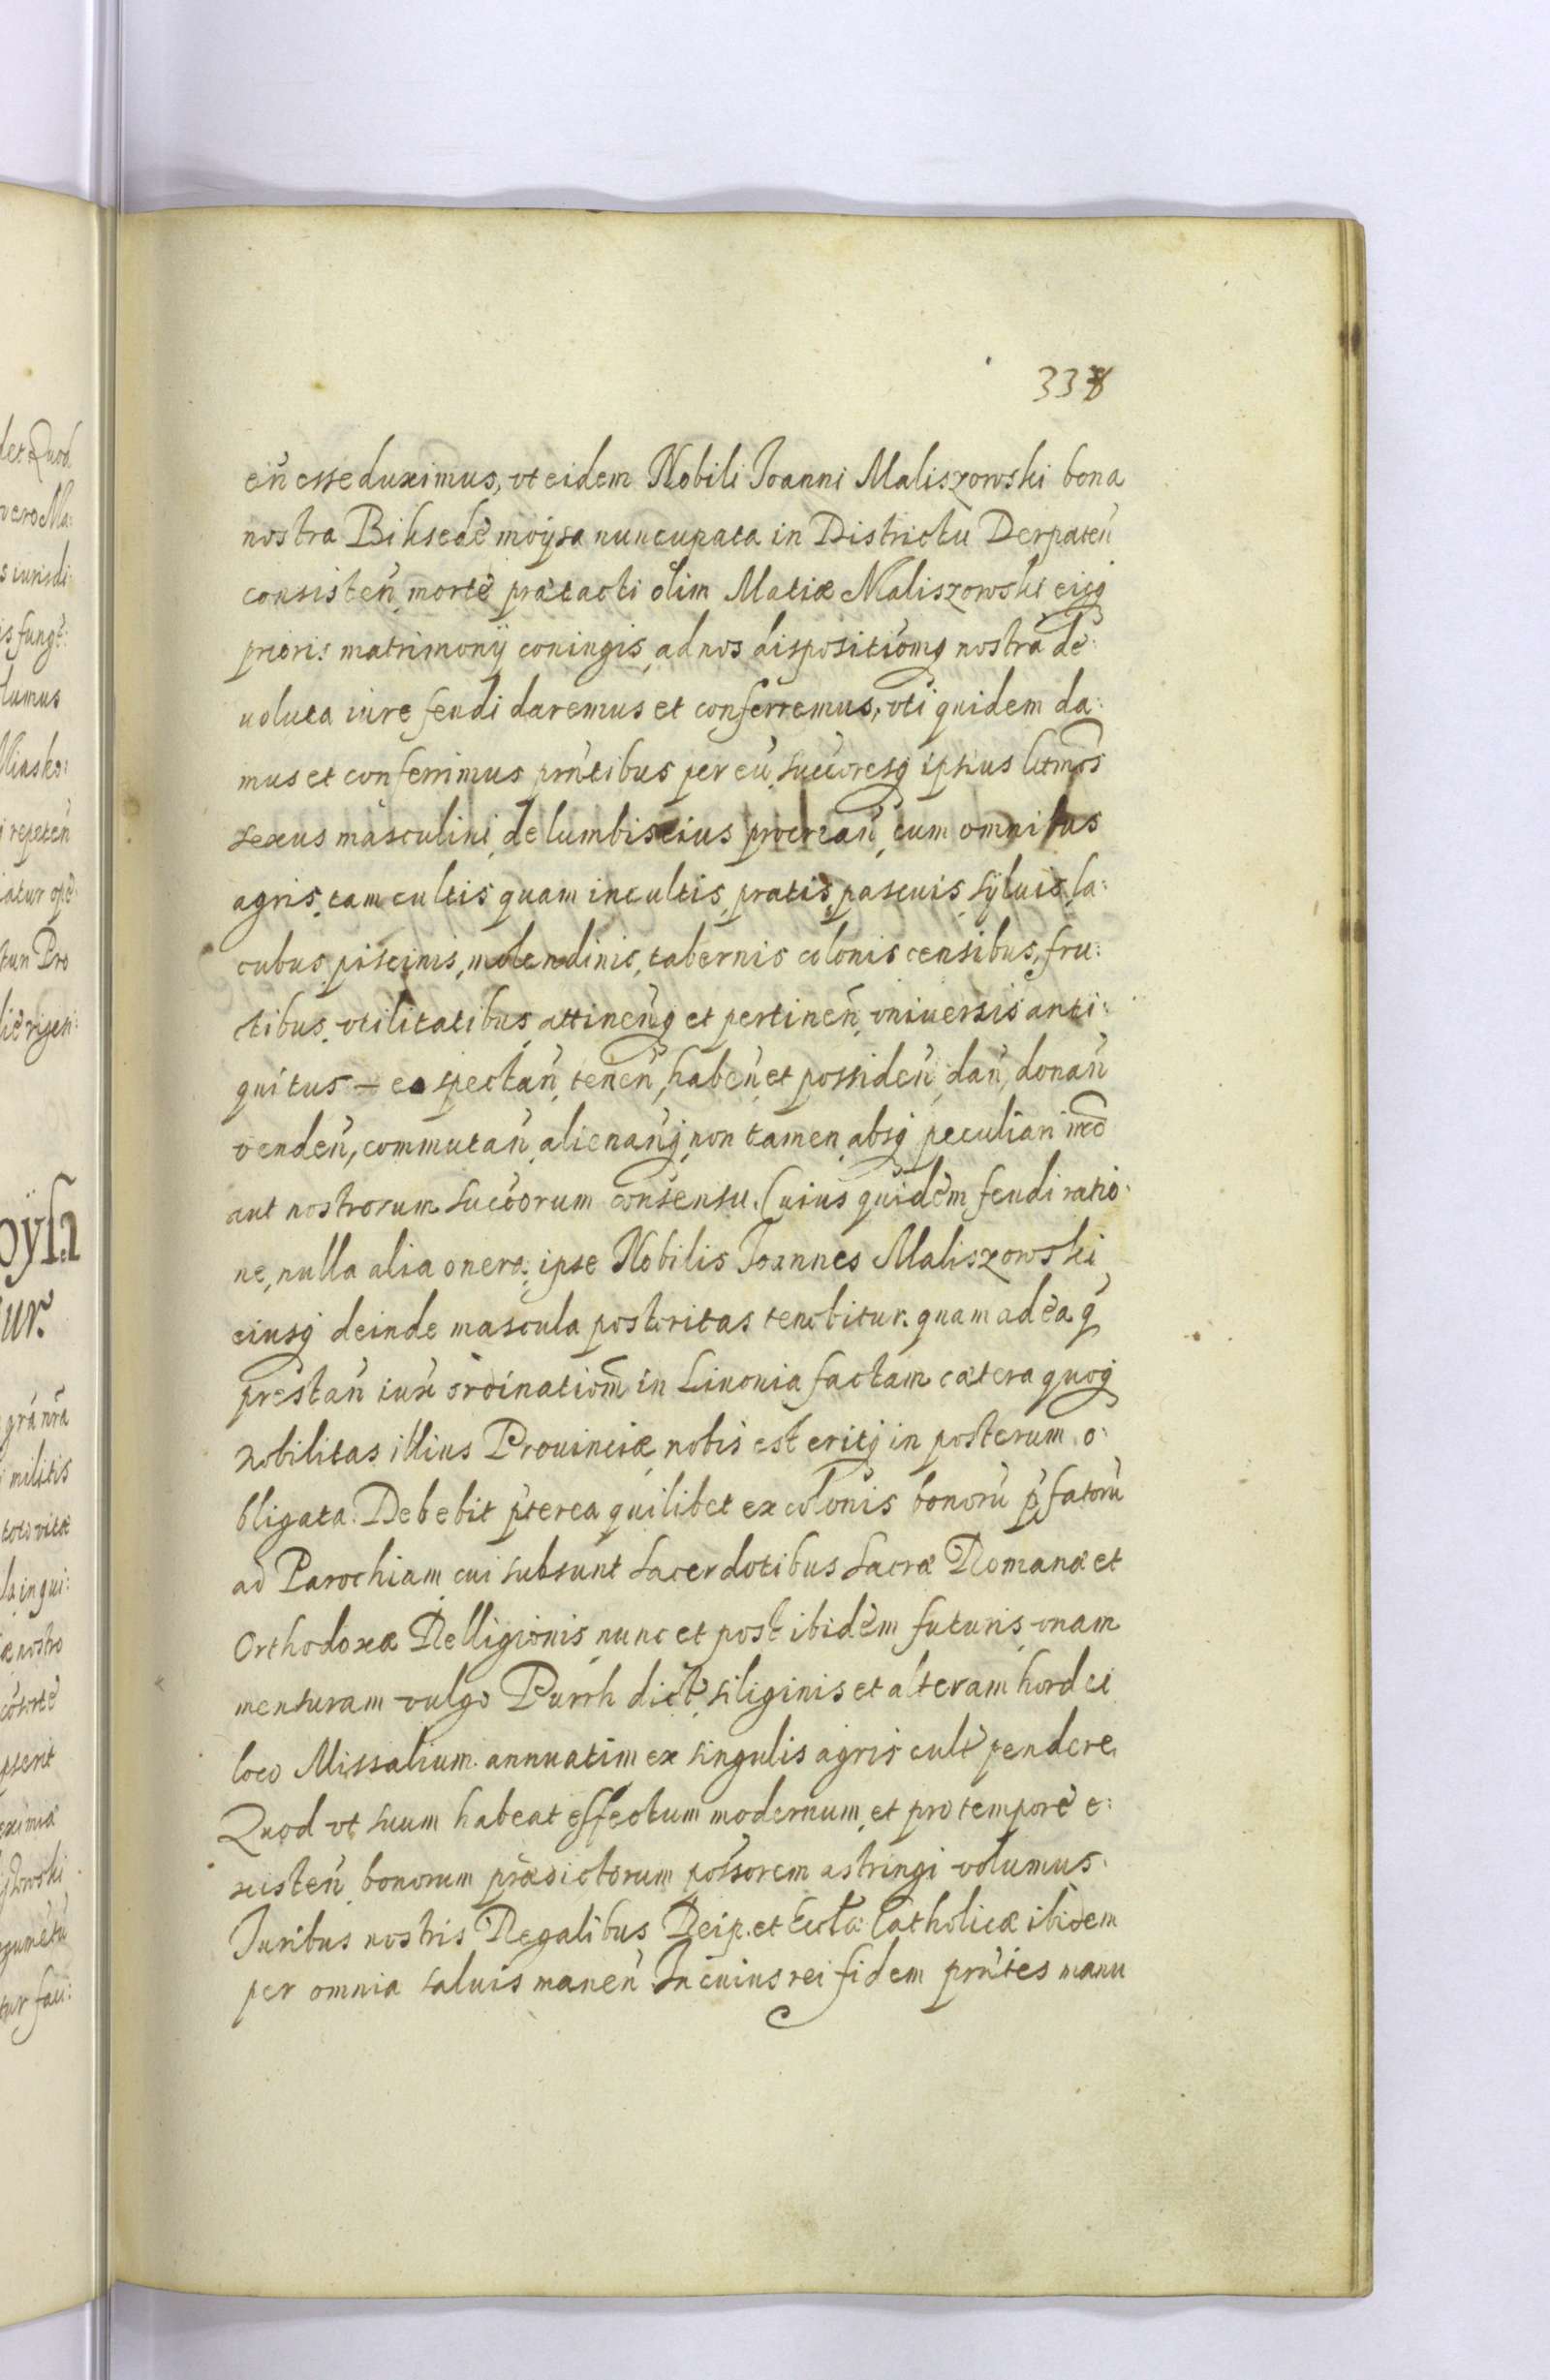 338
eñ esse duximus, vt eidem Nobili Joanni Maliszowski bona
nostra Biksede moÿsa nuncupata in Districtu Derpateñ
consisteñ, morte prætacti olim Matiæ Maliszowski eiusq
prioris matrimonÿ coniugis, ad nos dispositiomq nostrã de:
uoluta iure feudi daremus et conferremus, vti quidem da:
mus et conferrimus pñtibus per eũ, succoresq ipsius ltmos
sexus masculini, de lumbis eius procreañ, cum omnibus
agris, tam cultis quam incultis, pratis, pascuis, sÿluis, la:
cubus, piscinis, molendinis, tabernis colonis censibus, fru:
ctibus, vtilitatibus, attineñq et pertineñ, vniuersis anti:
quitus eo spectañ, teneñ, habeñ, et possideñ, dañ, donañ
vendeñ, commutañ, alienañq, non tamen absq peculiari
aut nostrorum succorum consensu. Cuius quidem feudi ratio:
ne, nulla alia onera, ipse Nobilis Joannes Maliszowski
eiusq deinde mascula posteritas tenebitur. quam ad ea q
prestañ iux ordinatiom in Liuonia factam cætera quoq
nobilitas illius Prouinciæ nobis est eritq in posterum o:
bligata. Debebit pterea quilibet ex colonis bonorũ pfatorũ
ad Parochiam cui subsunt Sacerdotibus Sacræ Romanæ et
Orthodoxæ Relligionis, nunc et post ibidem futuris, vnam
mensuram vulgo Purrh dict, siliginis et alteram hordei
loco Missalium. annuatim ex singulis agris cult pendere.
Quod vt suum habeat effectum modernum, et pro tempore e:
xisteñ bonorum prædictorum possorem astringi volumus.
Juribus nostris Regalibus Reip. et Eccla Catholicæ ibidem
per omnia saluis maneñ. In cuius rei fidem pñtes manu